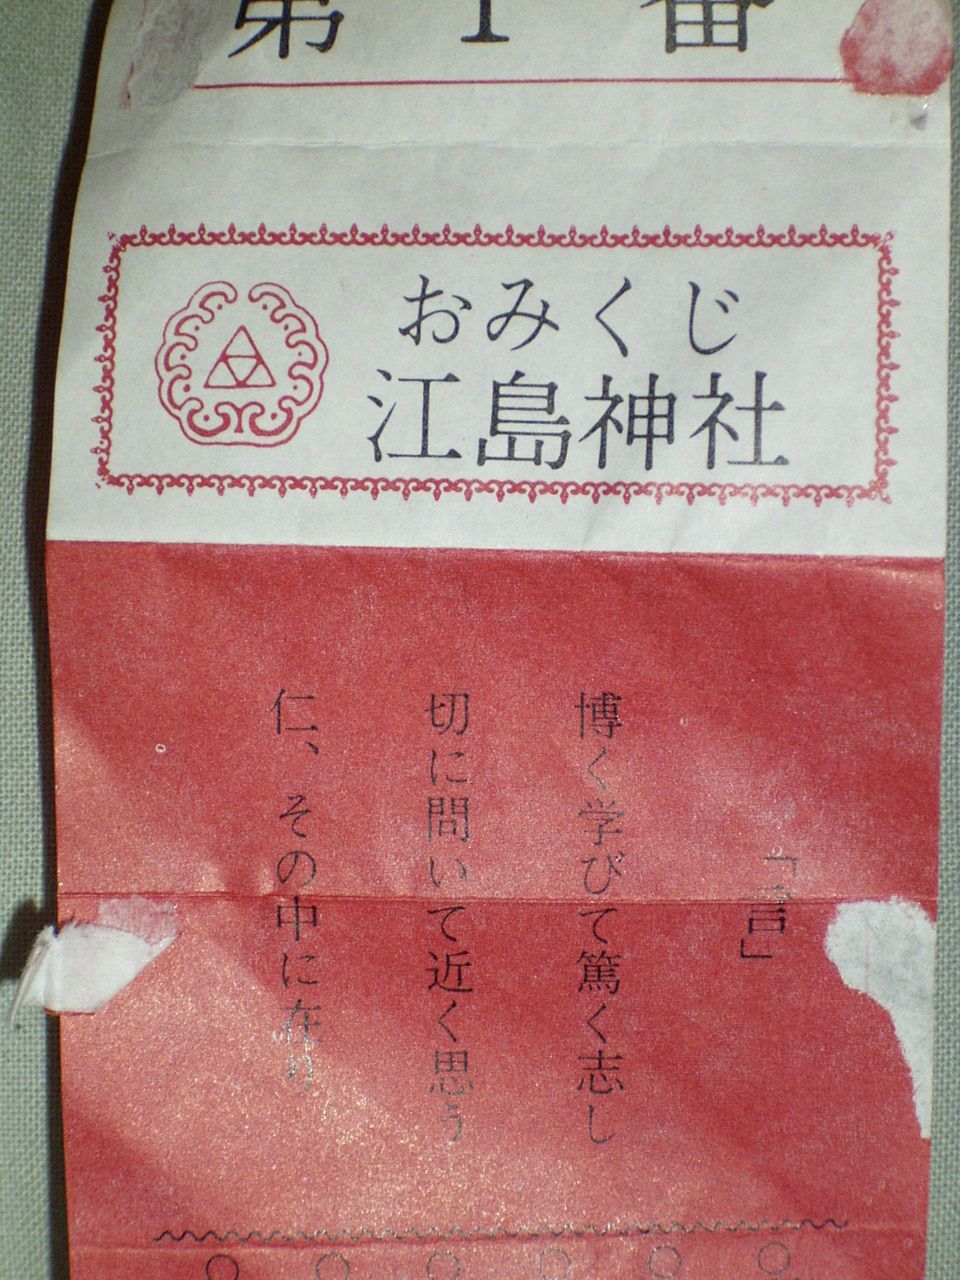 第1番
おみくじ
江島神社
「言」
博く学びて篤く志し
切に問いて近く思う
仁、その中に在り